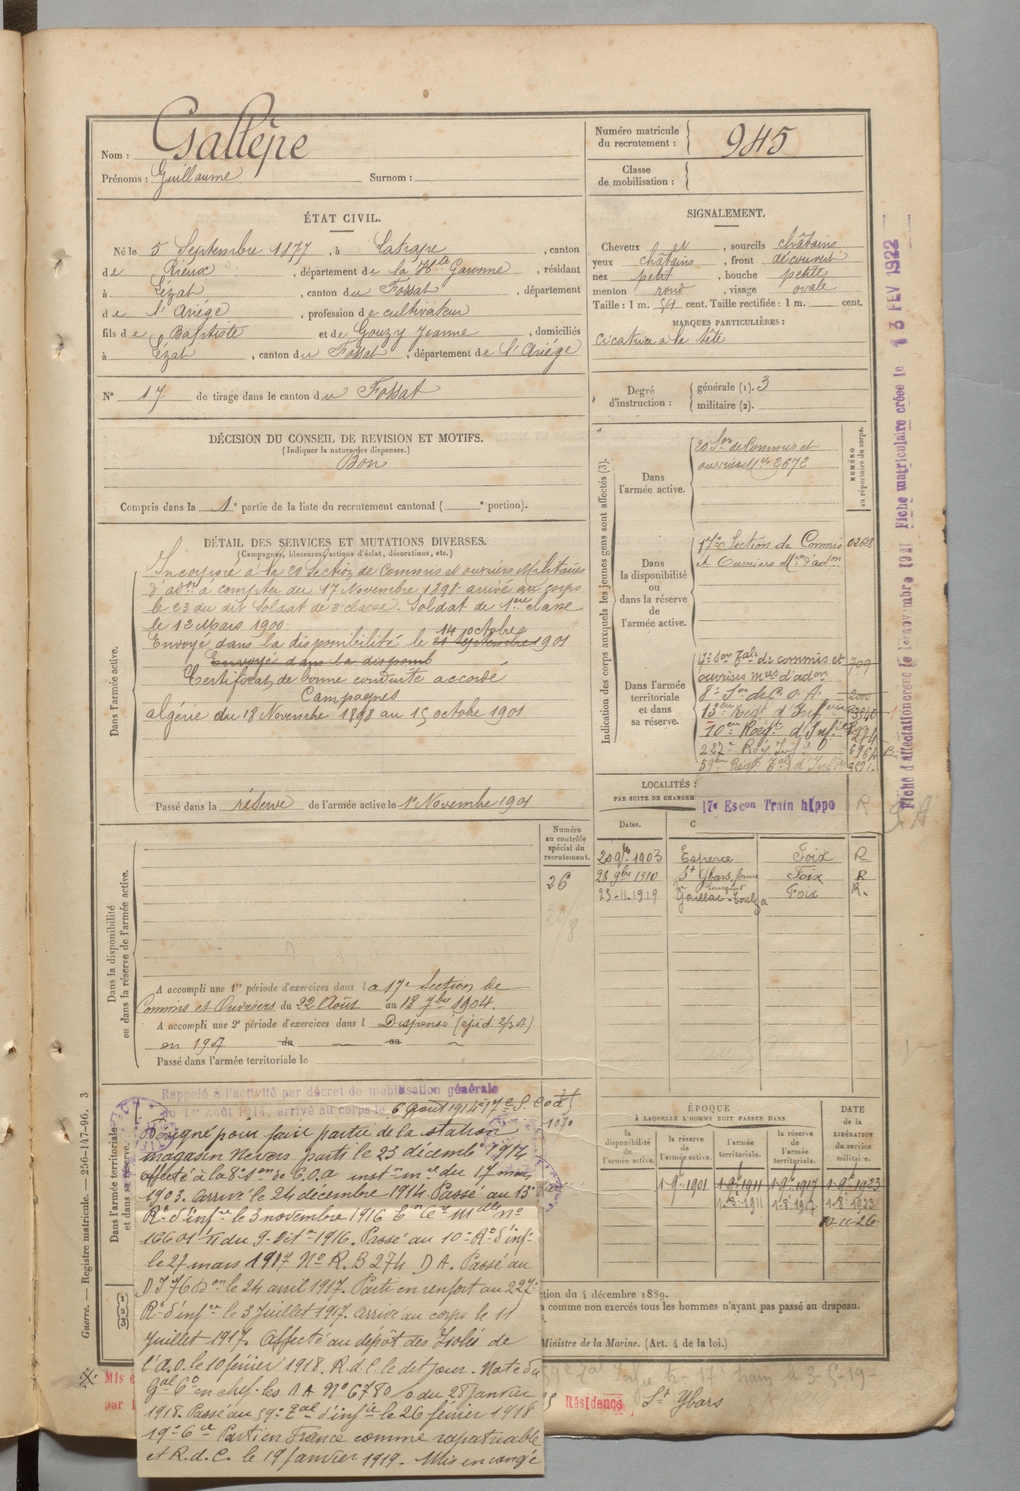 Nom : Gallèpe
Prénoms : Guillaume Surnom :
Numéro matricule du recrutement : 945
Classe de mobilisation :
ÉTAT CIVIL.
Né le 5 Septembre 1877, à Latrape, canton
de Rieux, département de la Hte Garonne, résidant
à Lézat, canton du Fossat, département
de l'Ariége, profession de cultivateur
fils de Baptiste et de Gouzy Jeanne, domiciliés
à Lézat, canton du Fossat, département de l'Ariége
N° 17 de tirage dans le canton du Fossat
SIGNALEMENT.
Cheveux et, sourcils châtains
yeux châtains, front découvert
nez petit, bouche petite
menton rond, visage ovale
Taille : 1 m. 54 cent. Taille rectifiée : 1 m. cent.
MARQUES PARTICULIÈRES :
cicatrice a la tête
Degré d'instruction : générale (1). 3
militaire (2).
DÉCISION DU CONSEIL DE REVISION ET MOTIFS.
(Indiquer la nature des dispenses.)
Bon
Compris dans la 1e partie de la liste du recrutement cantonal ( e portion).
DÉTAIL DES SERVICES ET MUTATIONS DIVERSES.
(Campagnes, blessures, actions d'éclat, décorations, etc.)
Dans l'armée active.
Incorporé à la 20 Section de Commis et ouvriers Militaires
d'adon à compter du 17 Novembre 1898 arrivé au corps
le 23 du dit Soldat de 2e classe. Soldat de 1ere classe
le 12 Mars 1900.
14 octobre
Envoyé dans la disponibilité le 21 Septembre 1901
Envoyé dans la disponib
Certificat de bonne conduite accordé
Campagnes
algérie du 18 Novembre 1898 au 15 octobre 1901
Passé dans la réserve de l'armée active le 1er Novembre 1901
Indication des corps auxquels les jeunes gens sont affectés (3).
NUMÉRO au répertoire du corps.
Dans l'armée active.
20 Son de Commis et
ouvriers Mle 2672
Dans la disponibilité ou dans la réserve de l'armée active.
17e Section de Commis 0268
et Ouvriers Mres d'adon
Dans l'armée territoriale et dans sa réserve.
17e Son Tale de commis et 709
ouvriers mres d'adon
8e Son de C. O. A. 2000
13eme Régt d'Infrie
10eme Régt d'Infrie
227e Rég Infie
59eme Régt Tal d'Infie
LOCALITÉS :
PAR SUITE DE CHANGEM
17e Escon Train hippo
R
Dates. C
20 9bre 1903 Esperce Foix R
28 9bre 1910 St Ybars, ferme Foix R
23-11-1919 Gaillac-Toulza Foix R.
Fiche d'affectation Fiche matriculaire créée le 13 FEV 1922
Dans la disponibilité ou dans la réserve de l'armée active.
Numéro au contrôle spécial du recrutement.
26
A accompli une 1re période d'exercices dans la 17e Section de
Commis et Ouvriers du 22 Août au 18 7bre 1904.
A accompli une 2e période d'exercices dans l Dispensé
en 1907 du au
Passé dans l'armée territoriale le
Dans l'armée territoriale et dans sa réserve.
Rappelé à l'activité par décret de mobilisation générale
du 1er Août 1914, arrivé au corps le 6 août 1914 17e S.
Désigné pour faire partie de la station
magasin Nevers. parti le 23 décembre 1914
affecté à la 8e Son de C.O.a inston mre du 17 mars
1903. arrivé le 24 décembre 1914. Passé au 13e
Rt d'infrie le 3 novembre 1916
16601 TT du 9 Octre 1916. Passé au 10e Rt d'infie
le 27 mars 1917 No R.B 274 D A. Passé au
D I 76 Don le 24 avril 1917. Parti en renfort au 227e
Rt d'infie le 3 Juillet 1917. arrivé au corps le 11
Juillet 1917. Affecté au dépot des Isolés de
l'a.O. le 10 février 1918. R.d.C. le dit jour. Note du
Gal Ct en chef les AA No 6780/0 du 28 Janvier
1918. Passé au 59e Tal d'infie le 26 février 1918
19e Cie Parti en France comme rapatriable
et R.d.C. le 19 Janvier 1919. Mis en congé
ÉPOQUE
À LAQUELLE L'HOMME DOIT PASSER DANS
DATE DE LA LIBÉRATION du service militaire.
la disponibilité de l'armée active.
la réserve de l'armée active.
l'armée territoriale.
la réserve de l'armée territoriale.
1-9bre 1901 1-9bre 1911 1-9bre 1917 1-9bre 1923
1-8 1911 1-8 1917 1-8-1923
10-11-26
ction du 4 décembre 1889.
a comme non exercés tous les hommes n'ayant pas passé au drapeau.
Ministre de la Marine. (Art. 4 de la loi.)
Mis e
par l
Résidence St Ybars
Guerre. — Registre matricule. — 256-147-96. 3